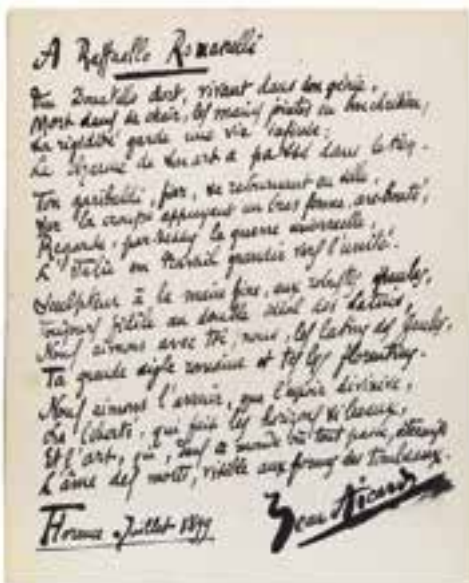 A Raffaello Romanelli
Ton Donatello dort, vivant dans son génie,
Mort dans sa chair, les mains jointes en bon chrétien,
Sa rigidité garde une vie infinie:
Le de son art a passé dans le tien.
Ton garibaldi, fier, se retournant en selle,
Sur la croupe appuyant un bras ferme, arc-bouté,
Regarde, par-dessus la guerre universelle,
L'Italie en travail grandir vers l'unité.
Sculpteur à la main fine, aux robustes épaules,
Toujours fidèle au double idéal des latins,
Nous aimons avec toi, nous, les latins des Gaules,
Ta grande aigle romaine et tes lys florentins.
Nous aimons l'avenir, que l'espoir divinise,
La liberté, qui fuit les horizons
Et l'art, qui, dans ce monde où tout passe, éternise
L'âme des morts, visible aux formes des tombeaux.
Florence Juillet 1899
Jean Aicard